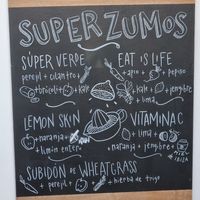 SUPER ZUMOS
SÚPER VERDE
perejil + cilantro +
brócoli + kale
EAT IS LIFE
apio + pepino
kale + jengibre
+ lima
LEMON SKIN
naranja +
limón entero
VITAMINAC
+ lima +
naranja + jengibre
+ MIEL IBIZA
SUBIDÓN DE WHEATGRASS
+ perejil + hierba de trigo